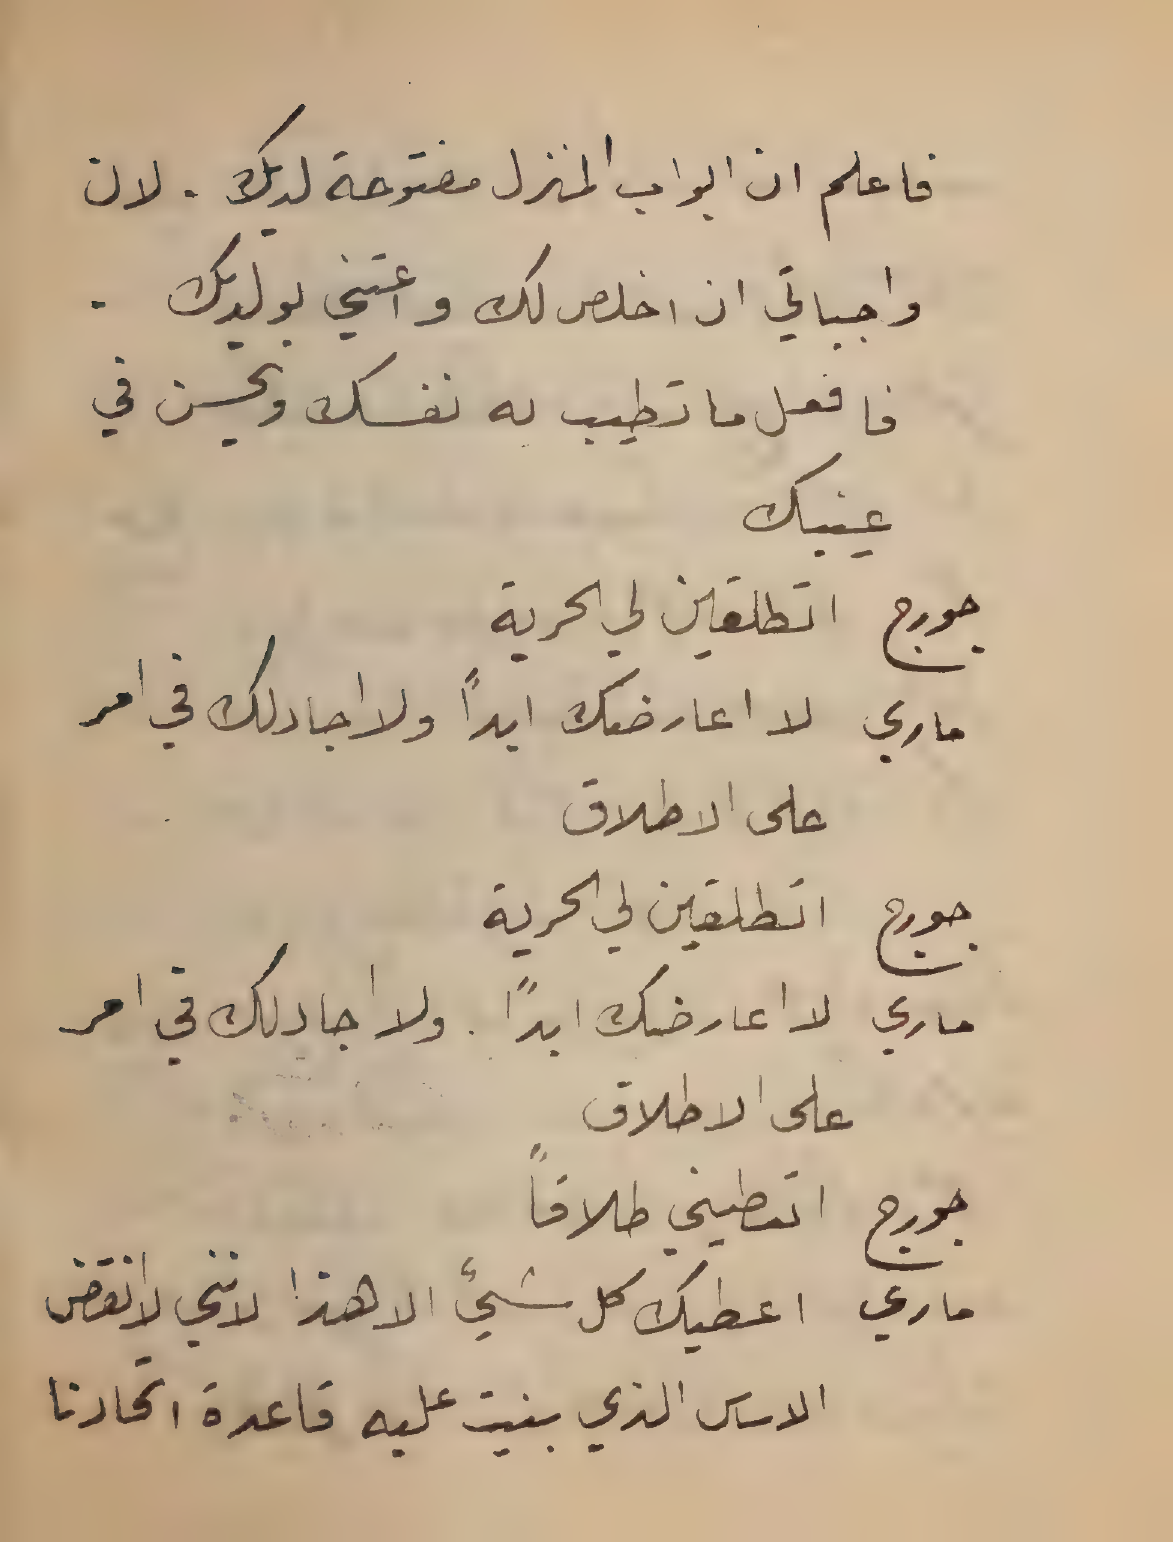 فاعلم ان ابواب المنزل مفتوحة لديك . لان
واجباتي ان اخلص لك واعتني بولديك .
فافعل ما تطيب به نفسك ويحسن في
عينيك
جورج اتطلقين لي الحرية
ماري لا اعارضك ابداً ولا اجادلك في امر
على الاطلاق
جورج اتطلقين لي الحرية
ماري لا اعارضك ابداً . ولا اجادلك في امر
على الاطلاق
جورج اتعطيني طلاقاً
ماري اعطيك كل شيءٍ الا هذا لانني لا انقض
الاساس الذي بنيت عليه قاعدة اتحادنا